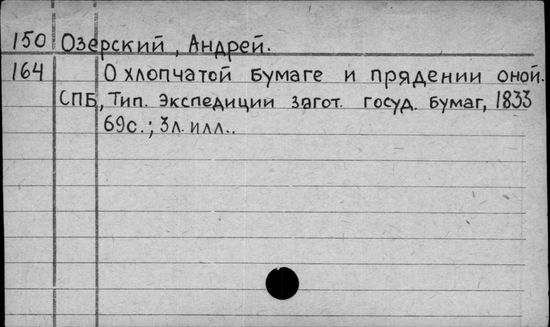 150 Озерский, Андрей.
164 О хлопчатой бумаге и прядении оной.
СПБ, Тип. Экспедиции загот. госуд. бумаг, 1833
69с.; 3л. илл..